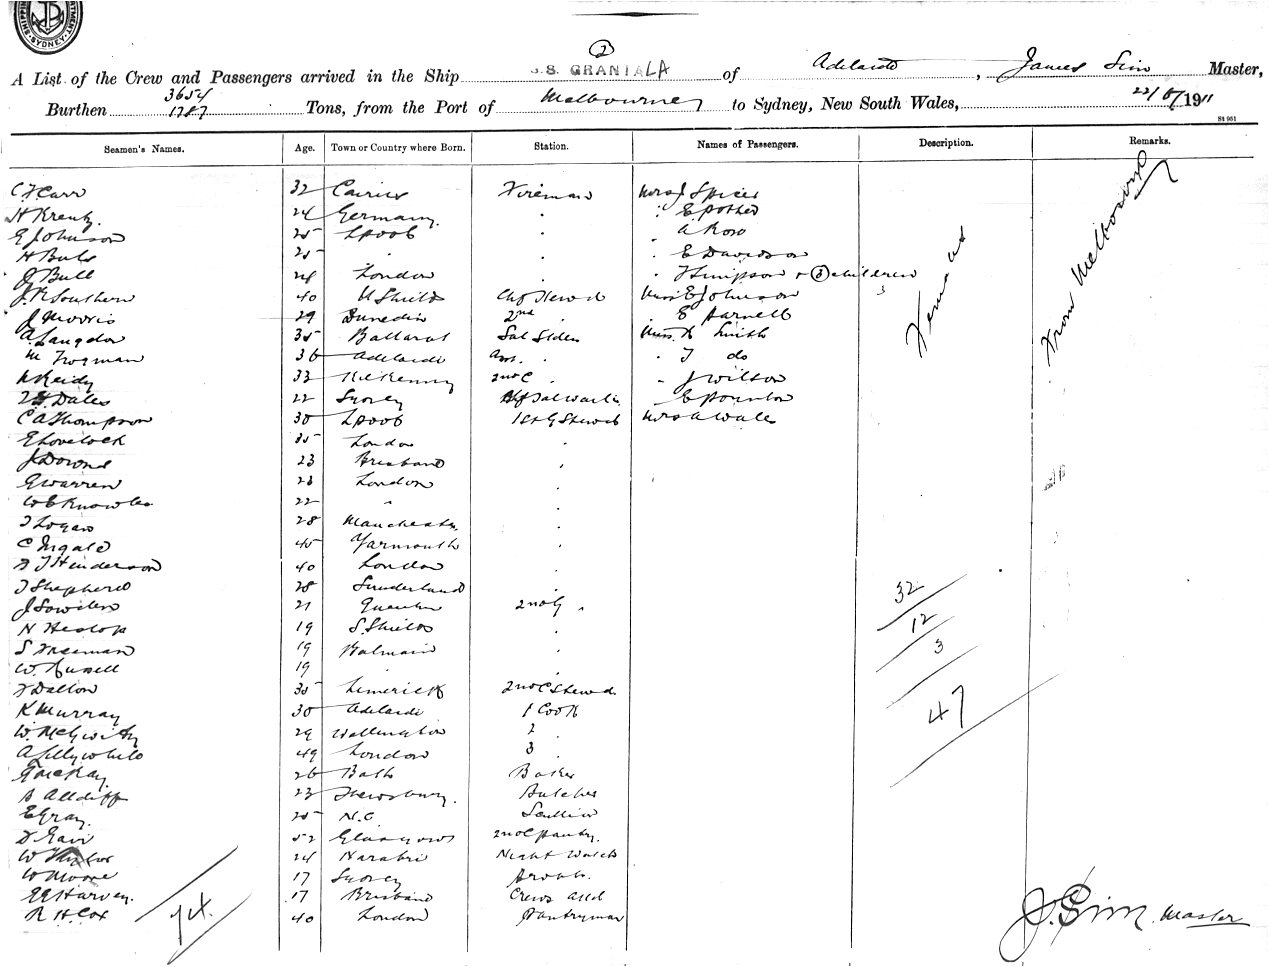 SYDNEY
(2)
A List of the Crew and Passengers arrived in the Ship S.S. GRANTALA of Adelaide, James Sim Master,
Burthen 3654 1787 Tons, from the Port of Melbourne to Sydney, New South Wales, 22/07/1911
St 951
Seamen's Names. Age. Town or Country where Born. Station. Names of Passengers. Description. Remarks.
C F Carr 32 Cairns Fireman Mrs J Spicer
H Krentz 24 Germany " " E Pother
E Johnson 25 Lpool " " A Row
H Buls 25 " " " E Davidson
J Bull 24 London " " F Simpson + (3) children 3
J R Southern 40 N Shields Chf Stewd Miss E Johnson
J Morris 29 Dunedin 2nd " " E Parnell
A Langdon 35 Ballarat Sal Miss K Smith
M Frogman 36 Adelaide " F do
N Reidy 33 Kilkenny 2nd C " " J Wilson
Dales 22 Sydney " E Pounton
C A Thompson 30 Lpool 1st G Stewd Mrs A Wale
E Lovelock 35 London "
J Downs 23 Brisbane "
G Warren 23 London "
W E Knowles 22 " "
T Logan 28 Manchester "
C Ingale 45 Yarmouth "
F J Henderson 40 London "
T Shepherd 28 Sunderland "
J Sowden 21 2nd G "
N Heslop 19 S. Shields "
S Freeman 19 Balmain "
W. Russell 19 " "
F Dallow 35 Limerick 2nd C Stewd.
K Murray 30 Adelaide 1 Cook
W. McGwilty 29 Wellington 2 "
A Lillywhite 49 London 3 "
G McKay 26 Bath Baker
B Alldiff 23 Shewsbury. Butcher
E Gray. 25 N.C. Scullion
D Gair 52 Glasgow 2nd C Pantry.
W Taylor 24 Narabri Night Watch
W Moore 17 Sydney
E A Harvey. 17 Brisbane Crews Asst
R. H. Cox 40 London Pantryman
Females
From Melbourne
32
12
3
47
J. Sim. Master